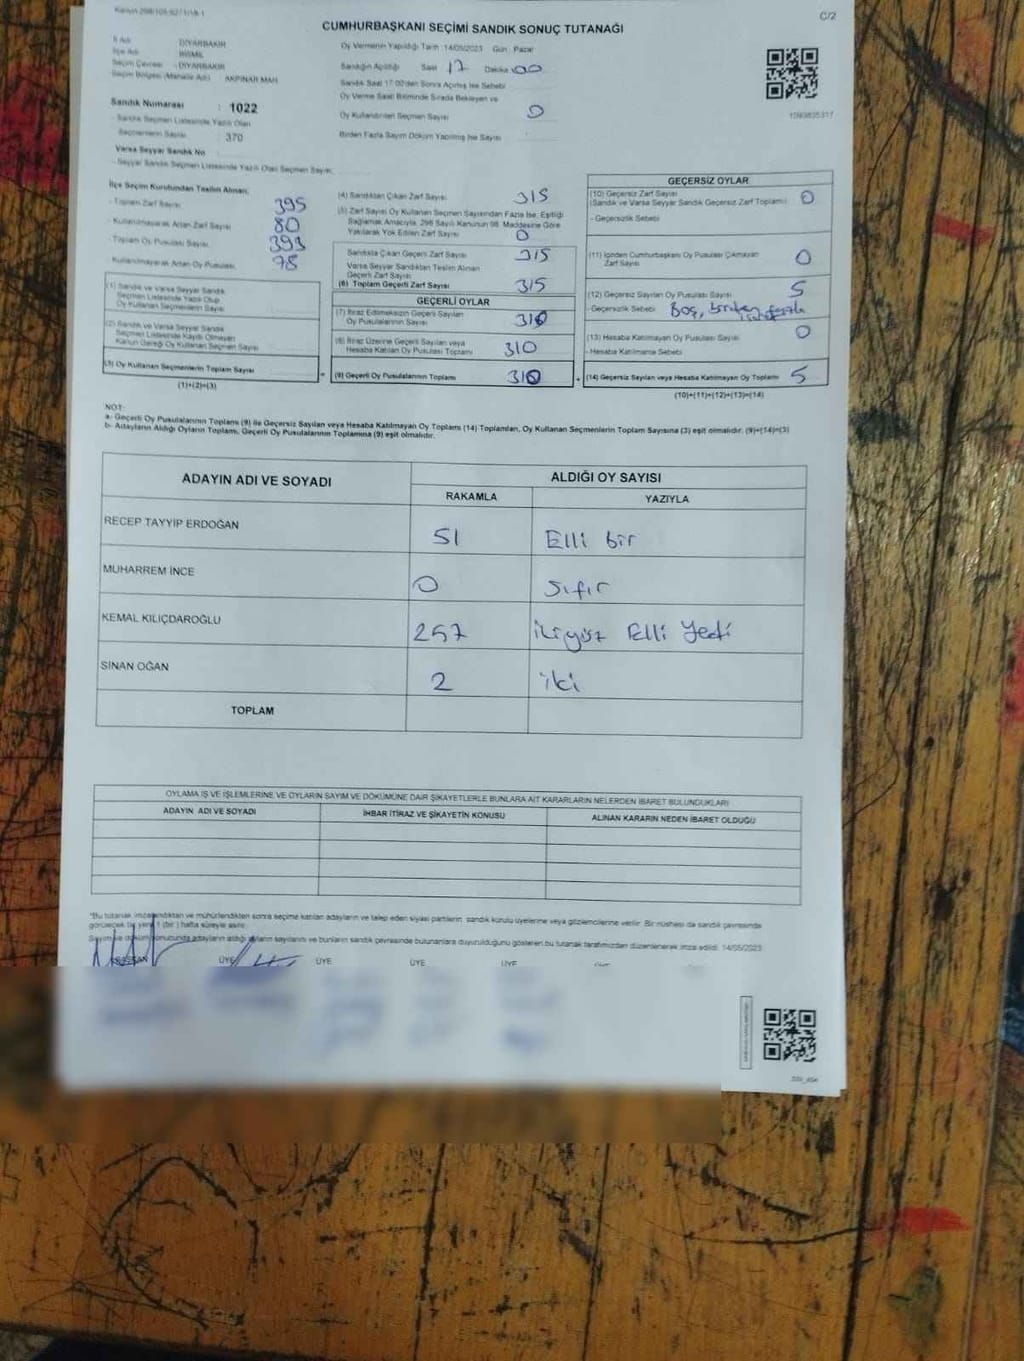 Kanun 298/105-6271/18-1
C/2
CUMHURBAŞKANI SEÇİMİ SANDIK SONUÇ TUTANAĞI
İl Adı : DİYARBAKIR
İlçe Adı : BİSMİL
Seçim Çevresi : DİYARBAKIR
Seçim Bölgesi (Mahalle Adı) : AKPINAR MAH.
Sandık Numarası : 1022
- Sandık Seçmen Listesinde Yazılı Olan
Seçmenlerin Sayısı : 370
Varsa Seyyar Sandık No
- Seyyar Sandık Seçmen Listesinde Yazılı Olan Seçmen Sayısı:
Oy Vermenin Yapıldığı Tarih :14/05/2023 Gün : Pazar
Sandığın Açıldığı Saat 17 Dakika 00
Sandık Saat 17:00'den Sonra Açılmış İse Sebebi
Oy Verme Saati Bitiminde Sırada Bekleyen ve
Oy Kullandırılan Seçmen Sayısı 0
Birden Fazla Sayım Döküm Yapılmış İse Sayısı
İlçe Seçim Kurulundan Teslim Alınan;
- Toplam Zarf Sayısı 395
- Kullanılmayarak Artan Zarf Sayısı 80
- Toplam Oy Pusulası Sayısı 393
- Kullanılmayarak Artan Oy Pusulası 78
(1) Sandık ve Varsa Seyyar Sandık
Seçmen Listesinde Yazılı Olup
Oy Kullanan Seçmenlerin Sayısı
(2) Sandık ve Varsa Seyyar Sandık
Seçmen Listesinde Kayıtlı Olmayan
Kanun Gereği Oy Kullanan Seçmenlerin Sayısı
(3) Oy Kullanan Seçmenlerin Toplam Sayısı
(1)+(2)=(3)
(4) Sandıktan Çıkan Zarf Sayısı 315
(5) Zarf Sayısı Oy Kullanan Seçmen Sayısından Fazla İse, Eşitliği
Sağlamak Amacıyla, 298 Sayılı Kanunun 98. Maddesine Göre
Yakılarak Yok Edilen Zarf Sayısı 0
Sandıkta Çıkan Geçerli Zarf Sayısı 315
Varsa Seyyar Sandıktan Teslim Alınan
Geçerli Zarf Sayısı
(6) Toplam Geçerli Zarf Sayısı 315
GEÇERLİ OYLAR
(7) İtiraz Edilmeksizin Geçerli Sayılan
Oy Pusulalarının Sayısı 310
(8) İtiraz Üzerine Geçerli Sayılan veya
Hesaba Katılan Oy Pusulası Toplamı 310
= (9) Geçerli Oy Pusulalarının Toplamı 310
GEÇERSİZ OYLAR
(10) Geçersiz Zarf Sayısı
(Sandık ve Varsa Seyyar Sandık Geçersiz Zarf Toplamı) 0
- Geçersizlik Sebebi
(11) İçinden Cumhurbaşkanı Oy Pusulası Çıkmayan
Zarf Sayısı 0
(12) Geçersiz Sayılan Oy Pusulası Sayısı 5
- Geçersizlik Sebebi Boş, birden fazla
(13) Hesaba Katılmayan Oy Pusulası Sayısı 0
- Hesaba Katılmama Sebebi
+ (14) Geçersiz Sayılan veya Hesaba Katılmayan Oy Toplamı 5
(10)+(11)+(12)+(13)=(14)
NOT:
a- Geçerli Oy Pusulalarının Toplamı (9) ile Geçersiz Sayılan veya Hesaba Katılmayan Oy Toplamı (14) Toplamları, Oy Kullanan Seçmenlerin Toplam Sayısına (3) eşit olmalıdır. (9)+(14)=(3)
b- Adayların Aldığı Oyların Toplamı, Geçerli Oy Pusulalarının Toplamına (9) eşit olmalıdır.
ADAYIN ADI VE SOYADI
ALDIĞI OY SAYISI
RAKAMLA YAZIYLA
RECEP TAYYİP ERDOĞAN 51 Elli bir
MUHARREM İNCE 0 Sıfır
KEMAL KILIÇDAROĞLU 257 ikiyüz Elli Yedi
SİNAN OĞAN 2 iki
TOPLAM
OYLAMA İŞ VE İŞLEMLERİNE VE OYLARIN SAYIM VE DÖKÜMÜNE DAİR ŞİKAYETLERLE BUNLARA AİT KARARLARIN NELERDEN İBARET BULUNDUKLARI
ADAYIN ADI VE SOYADI İHBAR İTİRAZ VE ŞİKAYETİN KONUSU ALINAN KARARIN NEDEN İBARET OLDUĞU
*Bu tutanak imzalandıktan ve mühürlendikten sonra seçime katılan adayların ve talep eden siyasi partilerin sandık kurulu üyelerine veya gözlemcilerine verilir. Bir nüshası da sandık çevresinde
görülecek bir yere 1 (bir) hafta süreyle asılır.
Sayım ve döküm sonucunda adayların aldığı oyların sayılarını ve bunların sandık çevresinde bulunanlara duyurulduğunu gösteren bu tutanak tarafımızdan düzenlenerek imza edildi. 14/05/2023
BAŞKAN ÜYE ÜYE ÜYE ÜYE